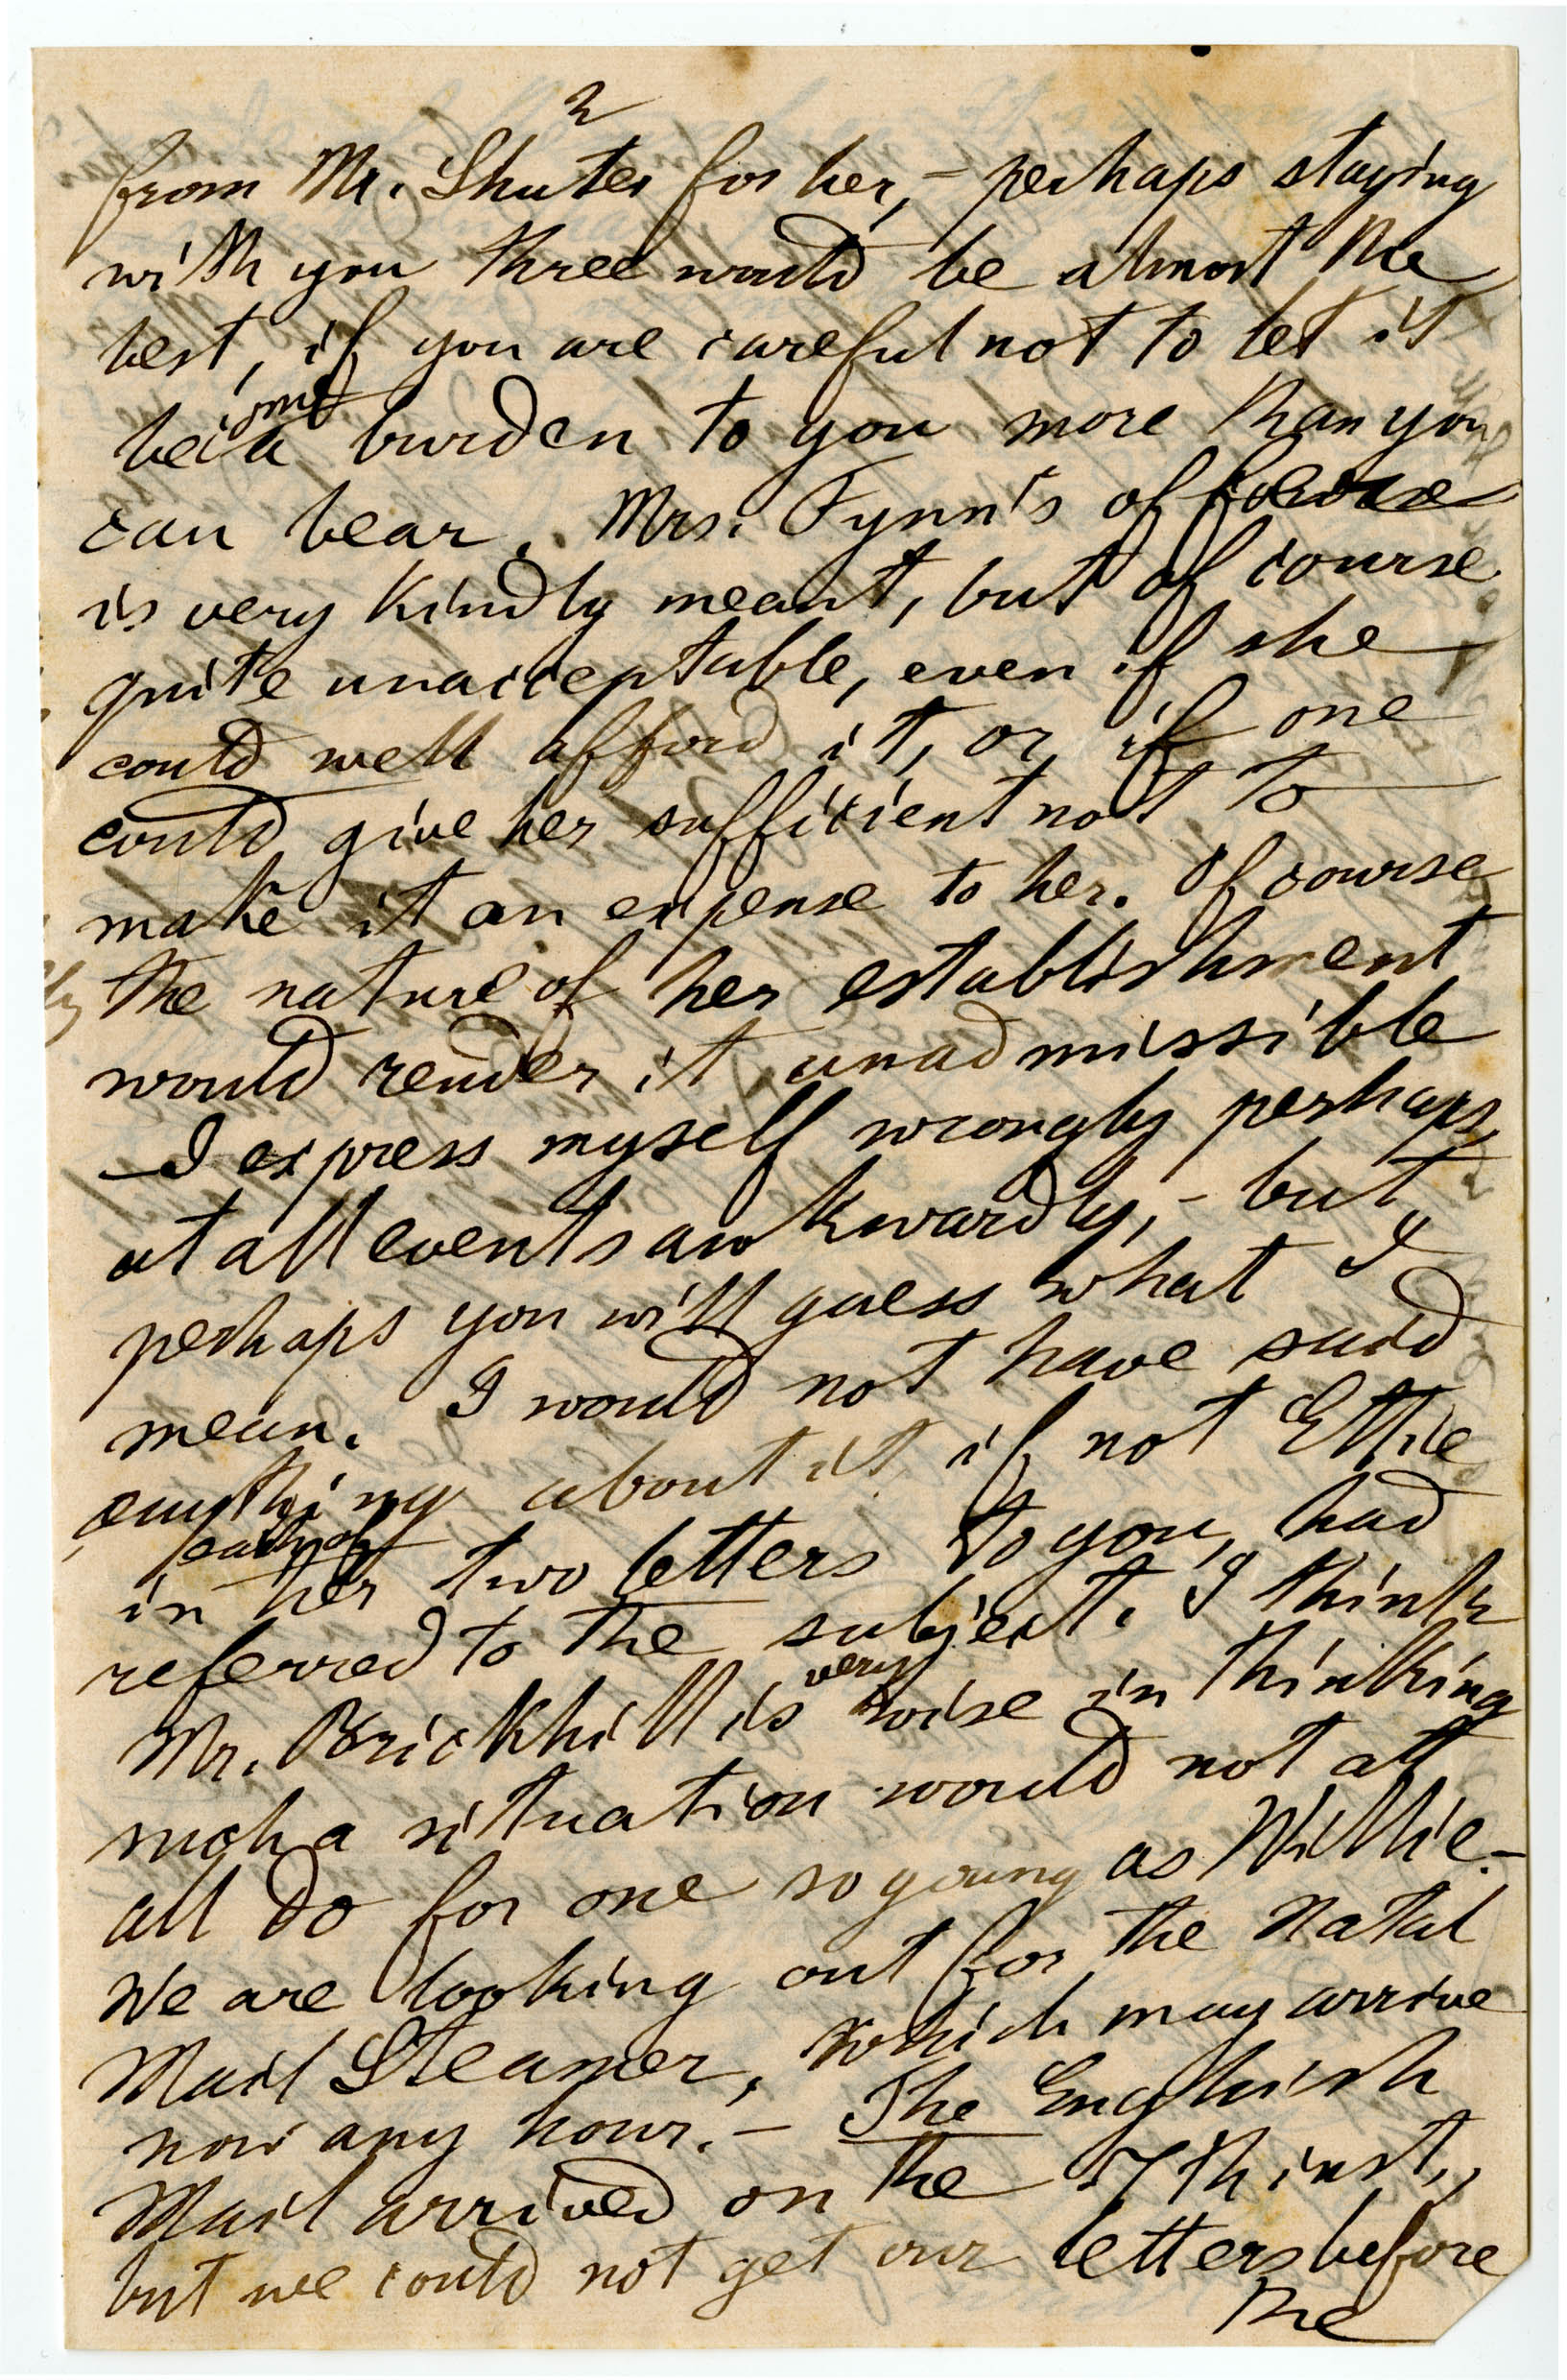 2
from Mr. Shuter for her, - perhaps staying
with you three would be almost the
best, if you are careful not to let it
be a burden to you more than you
can bear. Mrs. Fynn's offer
is very kindly meant, but of course
quite unacceptable, even if she
could well afford it, or if one
could give her sufficient not to
make it an expense to her. Of course
the nature of her establishment
would render it unadmissible
—I express myself wrongly perhaps,
at all events awkwardly, - but
perhaps you will guess what I
mean. I would not have said
anything about it if not Ethie
each of
in her two letters to you, had
referred to the subject. I think
very
Mr. Brickhill is wise in thinking
such a situation would not at
all do for one so young as Willie. -
We are looking out for the Natal
Mail Steamer, which may arrive
now any hour. - The English
Mail arrived on the 17th inst.,
but we could not get our letters before
the